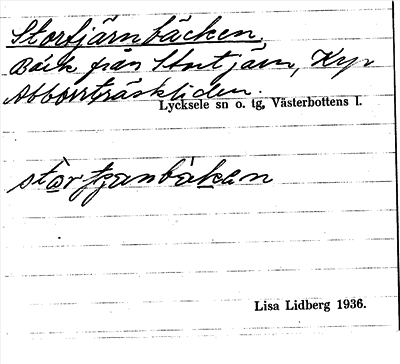 Stortjärnbäcken.
Bäck från Stortjärn, Kyr
Abborrträskliden.
Lycksele sn o. tg, Västerbottens l.
stortjenbäken
Lisa Lidberg 1936.